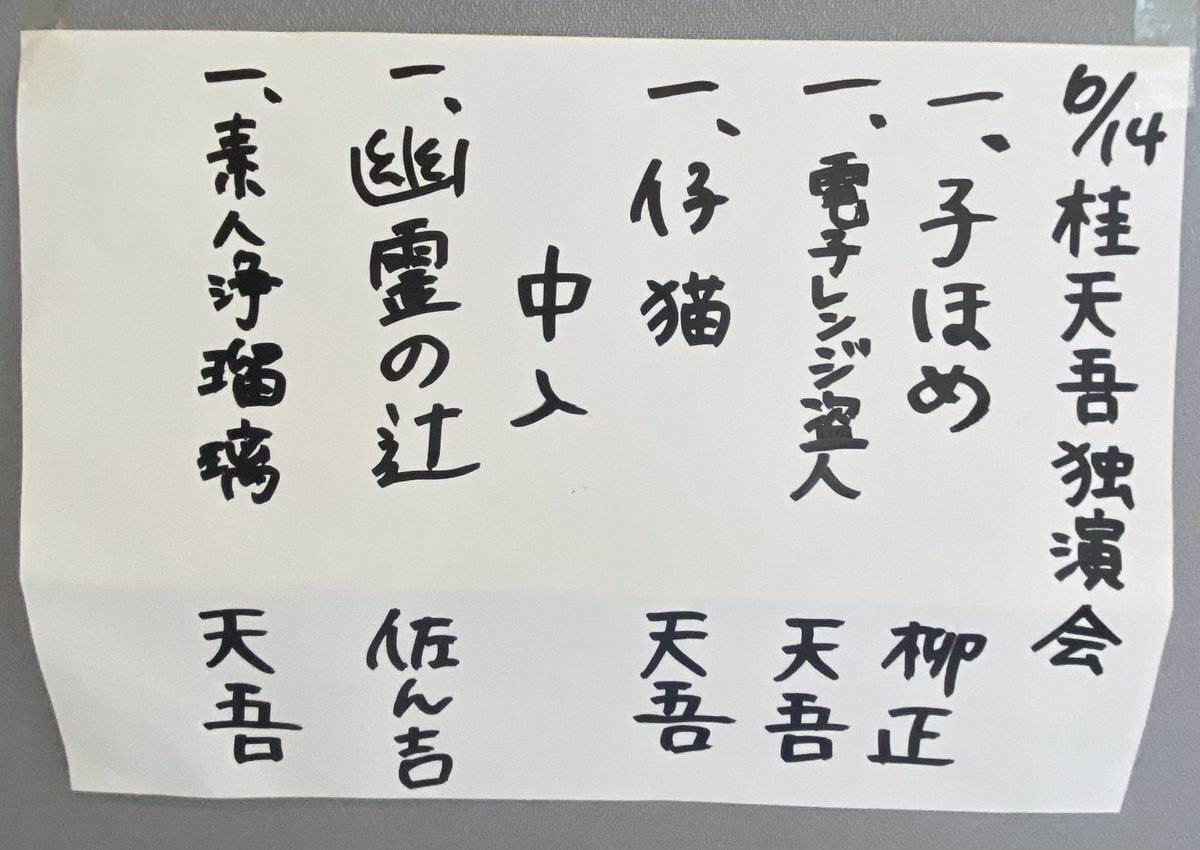 6/14 桂天吾独演会
一、子ほめ 柳正
一、電子レンジ盗人 天吾
一、仔猫 天吾
中入
一、幽霊の辻 佐ん吉
一、素人浄瑠璃 天吾